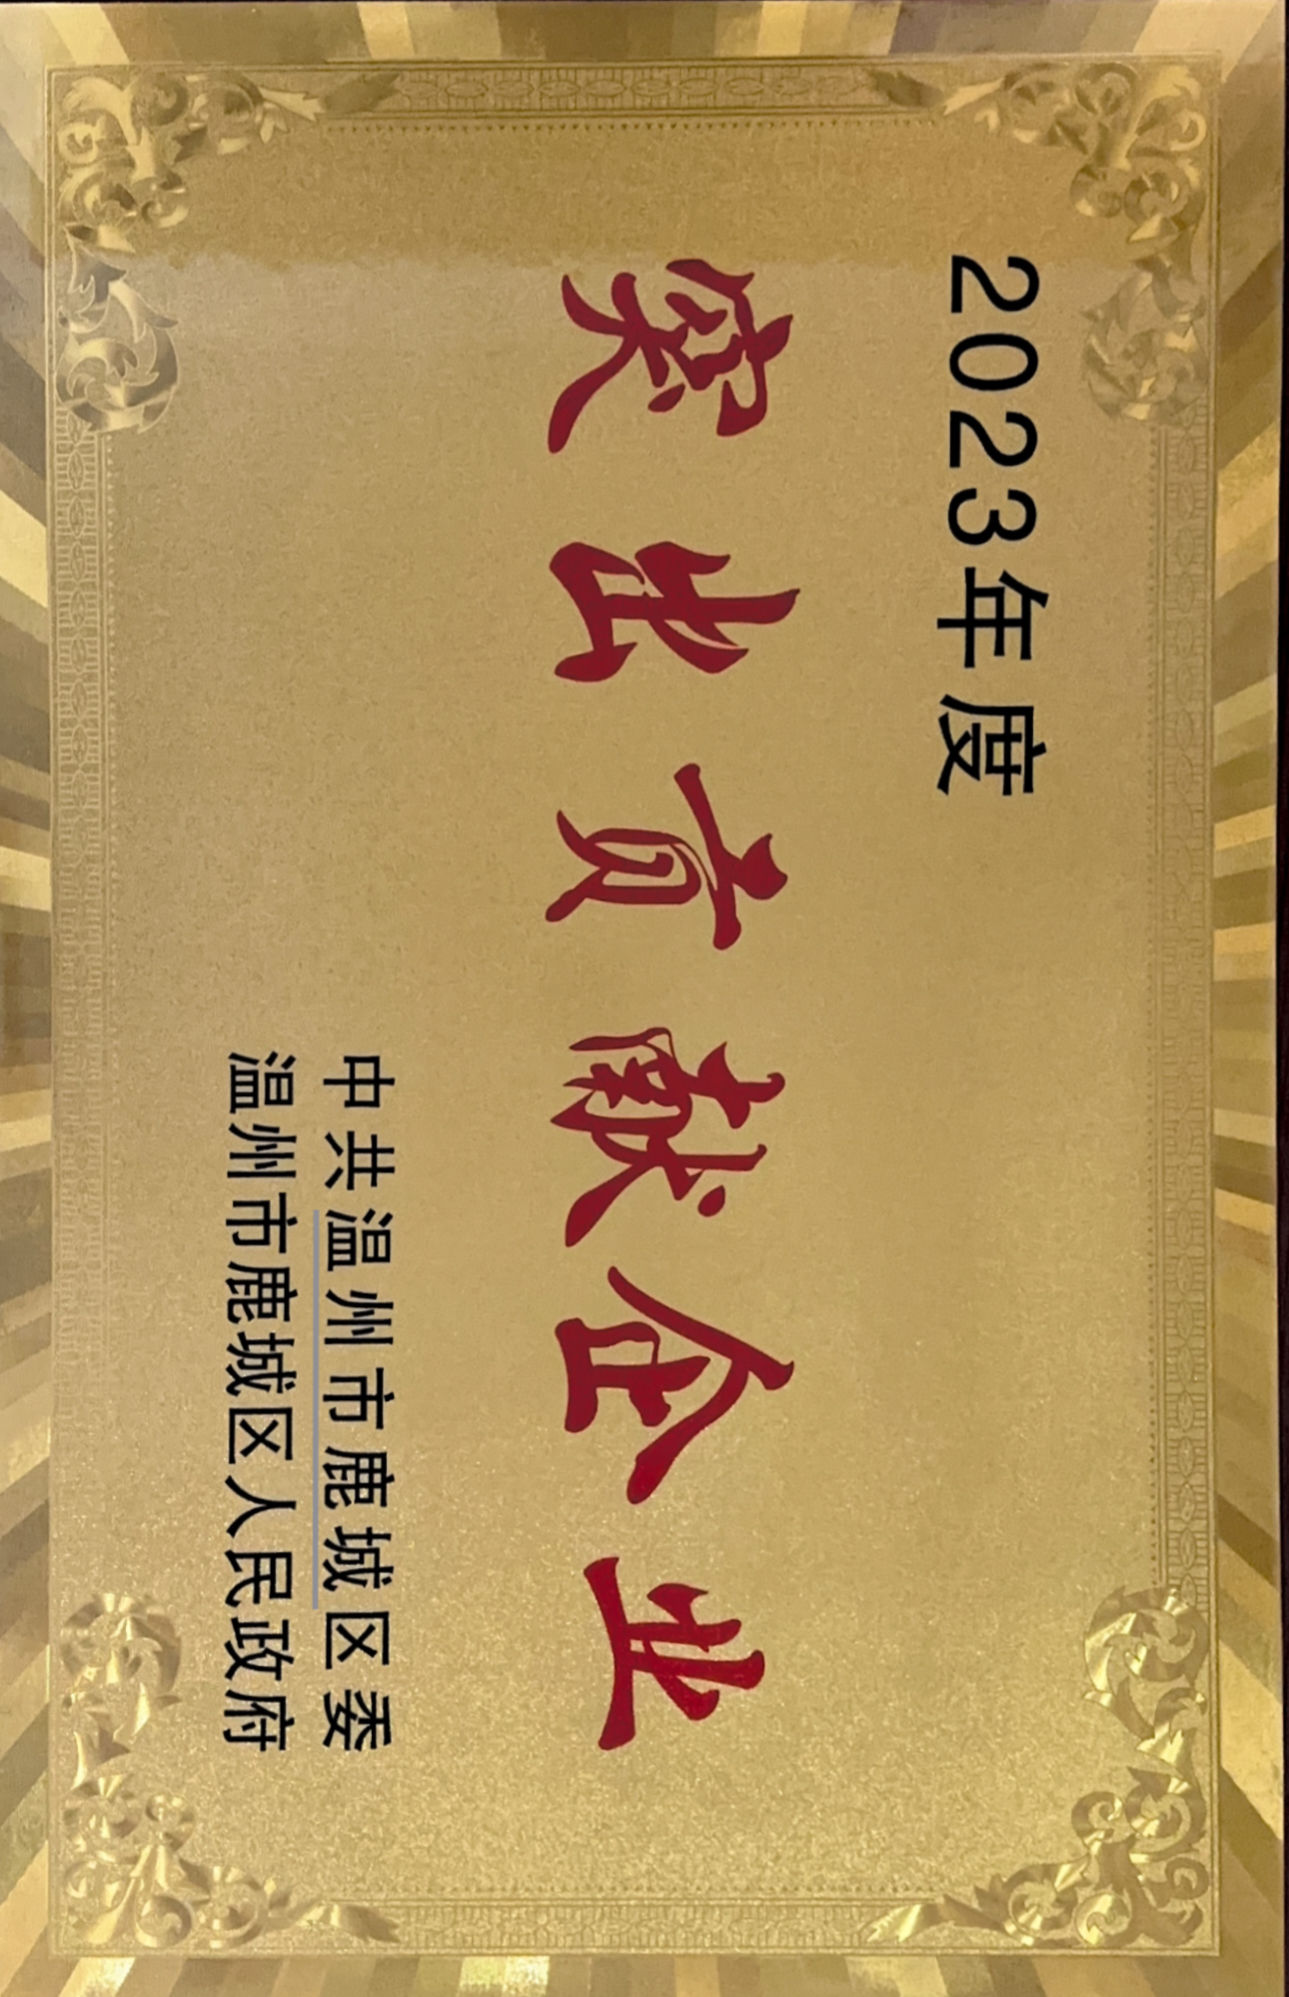 2023年度
突出贡献企业
中共温州市鹿城区委
温州市鹿城区人民政府